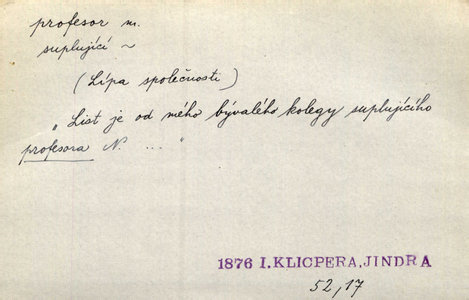 profesor m.
suplující ~
(Lípa společnosti)
„List je od mého bývalého kolegy suplujícího
profesora N. ... "
1876 I. KLICPERA, JINDRA
52, 17